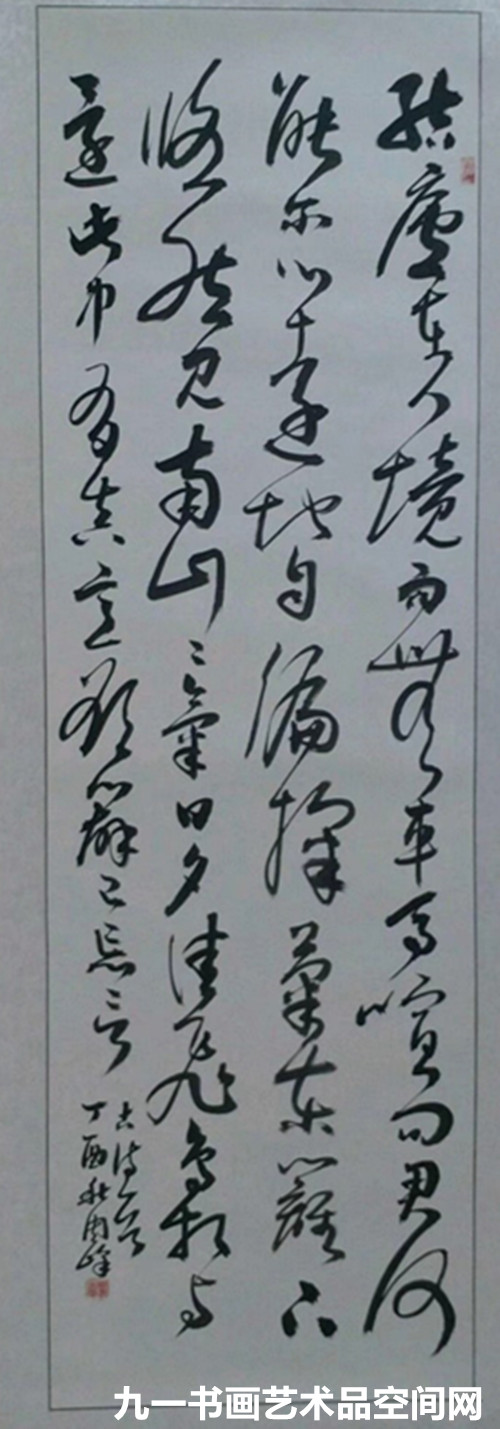 結廬在人境而無車馬喧問君何
能尔心遠地自偏採菊東籬下
悠然見南山〻氣日夕佳飛鳥相与
還此中有真意欲辨已忘言
古詩一首
丁酉秋國峰
九一书画艺术品空间网